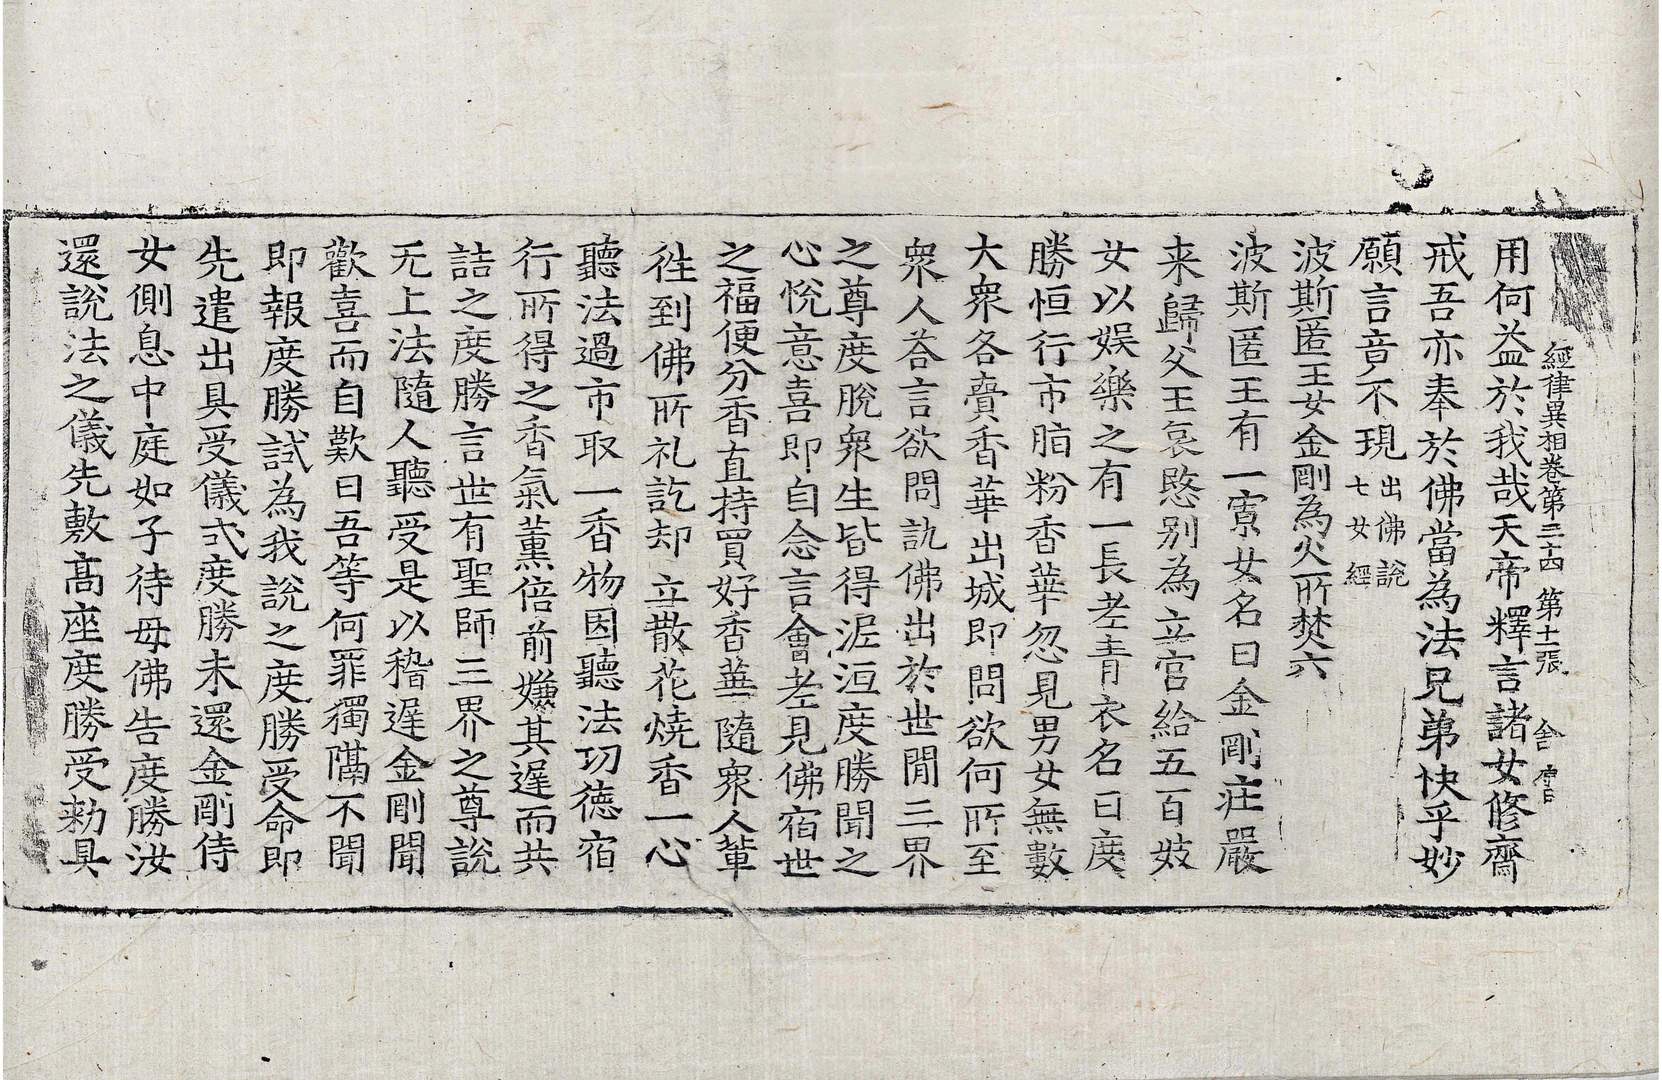 經律異相卷第三十四 第十二張 舍
用何益於我哉天帝釋言諸女修齋
戒吾亦奉於佛當為法兄弟快乎妙
願言音不現出佛說
七女經
波斯匿王女金剛為火所焚六
波斯匿王有一寡女名曰金剛壯嚴
来歸父王哀愍別為立宮給五百妓
女以娛樂之有一長老青衣名曰度
勝恒行市脂粉香華忽見男女無數
大衆各賷香華出城即問欲何所至
衆人荅言欲問訊佛出於世間三界
之尊度脫衆生皆得泥洹度勝聞之
心悅意喜即自念言會老見佛宿世
之福便分香直持買好香華隨衆人輩
徃到佛所礼訖却立散花燒香一心
聽法過市取一香物因聽法功德宿
行所得之香氣薰倍前嫌其遲而共
詰之度勝言世有聖師三界之尊說
无上法隨人聽受是以稽遲金剛聞
歡喜而自歎曰吾等何罪獨隔不聞
即報度勝試為我說之度勝受命即
先遣出具受儀式度勝未還金剛侍
女側息中庭如子待母佛告度勝汝
還說法之儀先敷髙座度勝受勑具